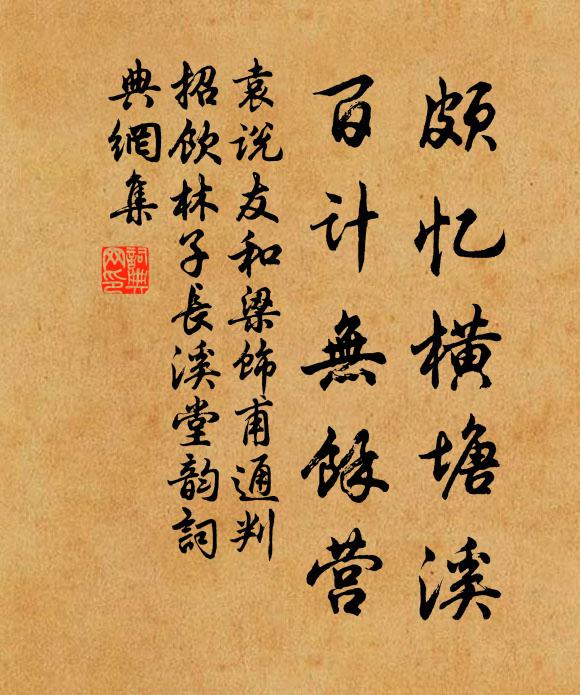 颇忆横塘溪
百计無餘营
袁说友和梁饰甫通判
招饮林子長溪堂韵詞
典網集
詞典网印